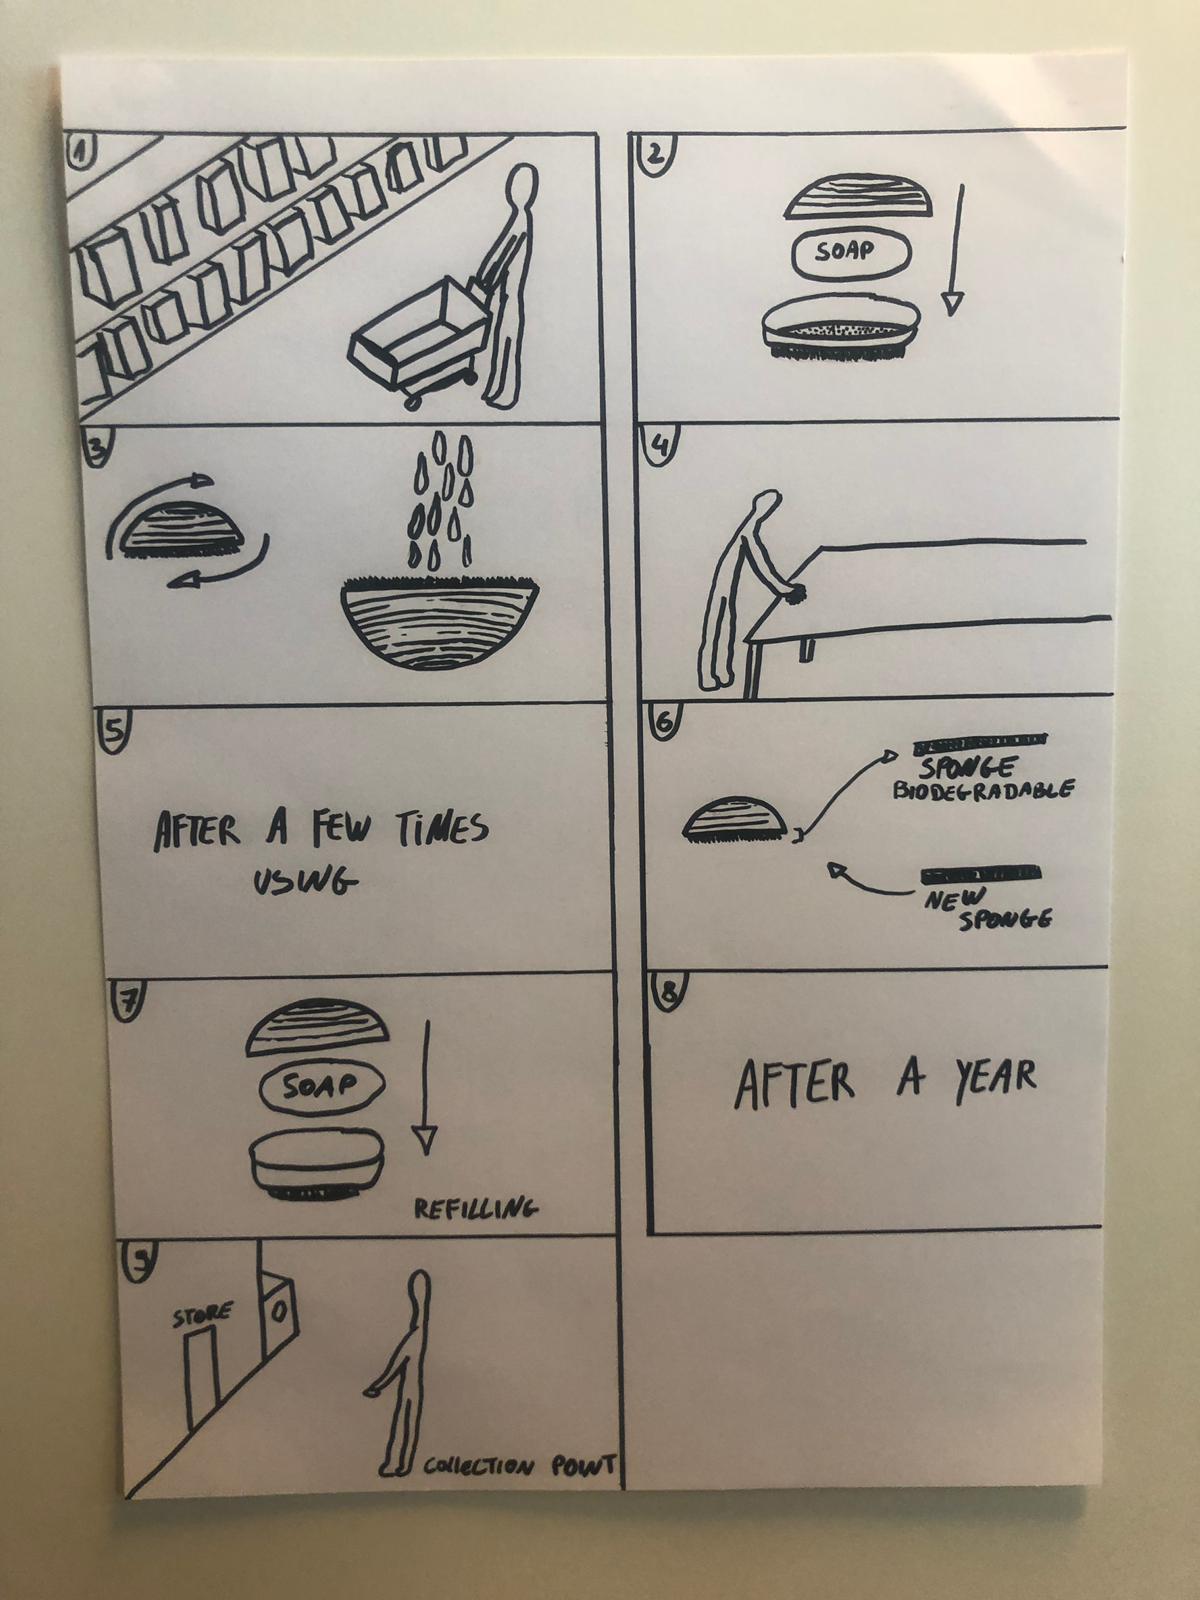 1
2
SOAP
3
4
5
AFTER A FEW TIMES
USING
6
SPONGE
BIODEGRADABLE
NEW
SPONGE
7
SOAP
REFILLING
8
AFTER A YEAR
9
STORE
COLLECTION POINT